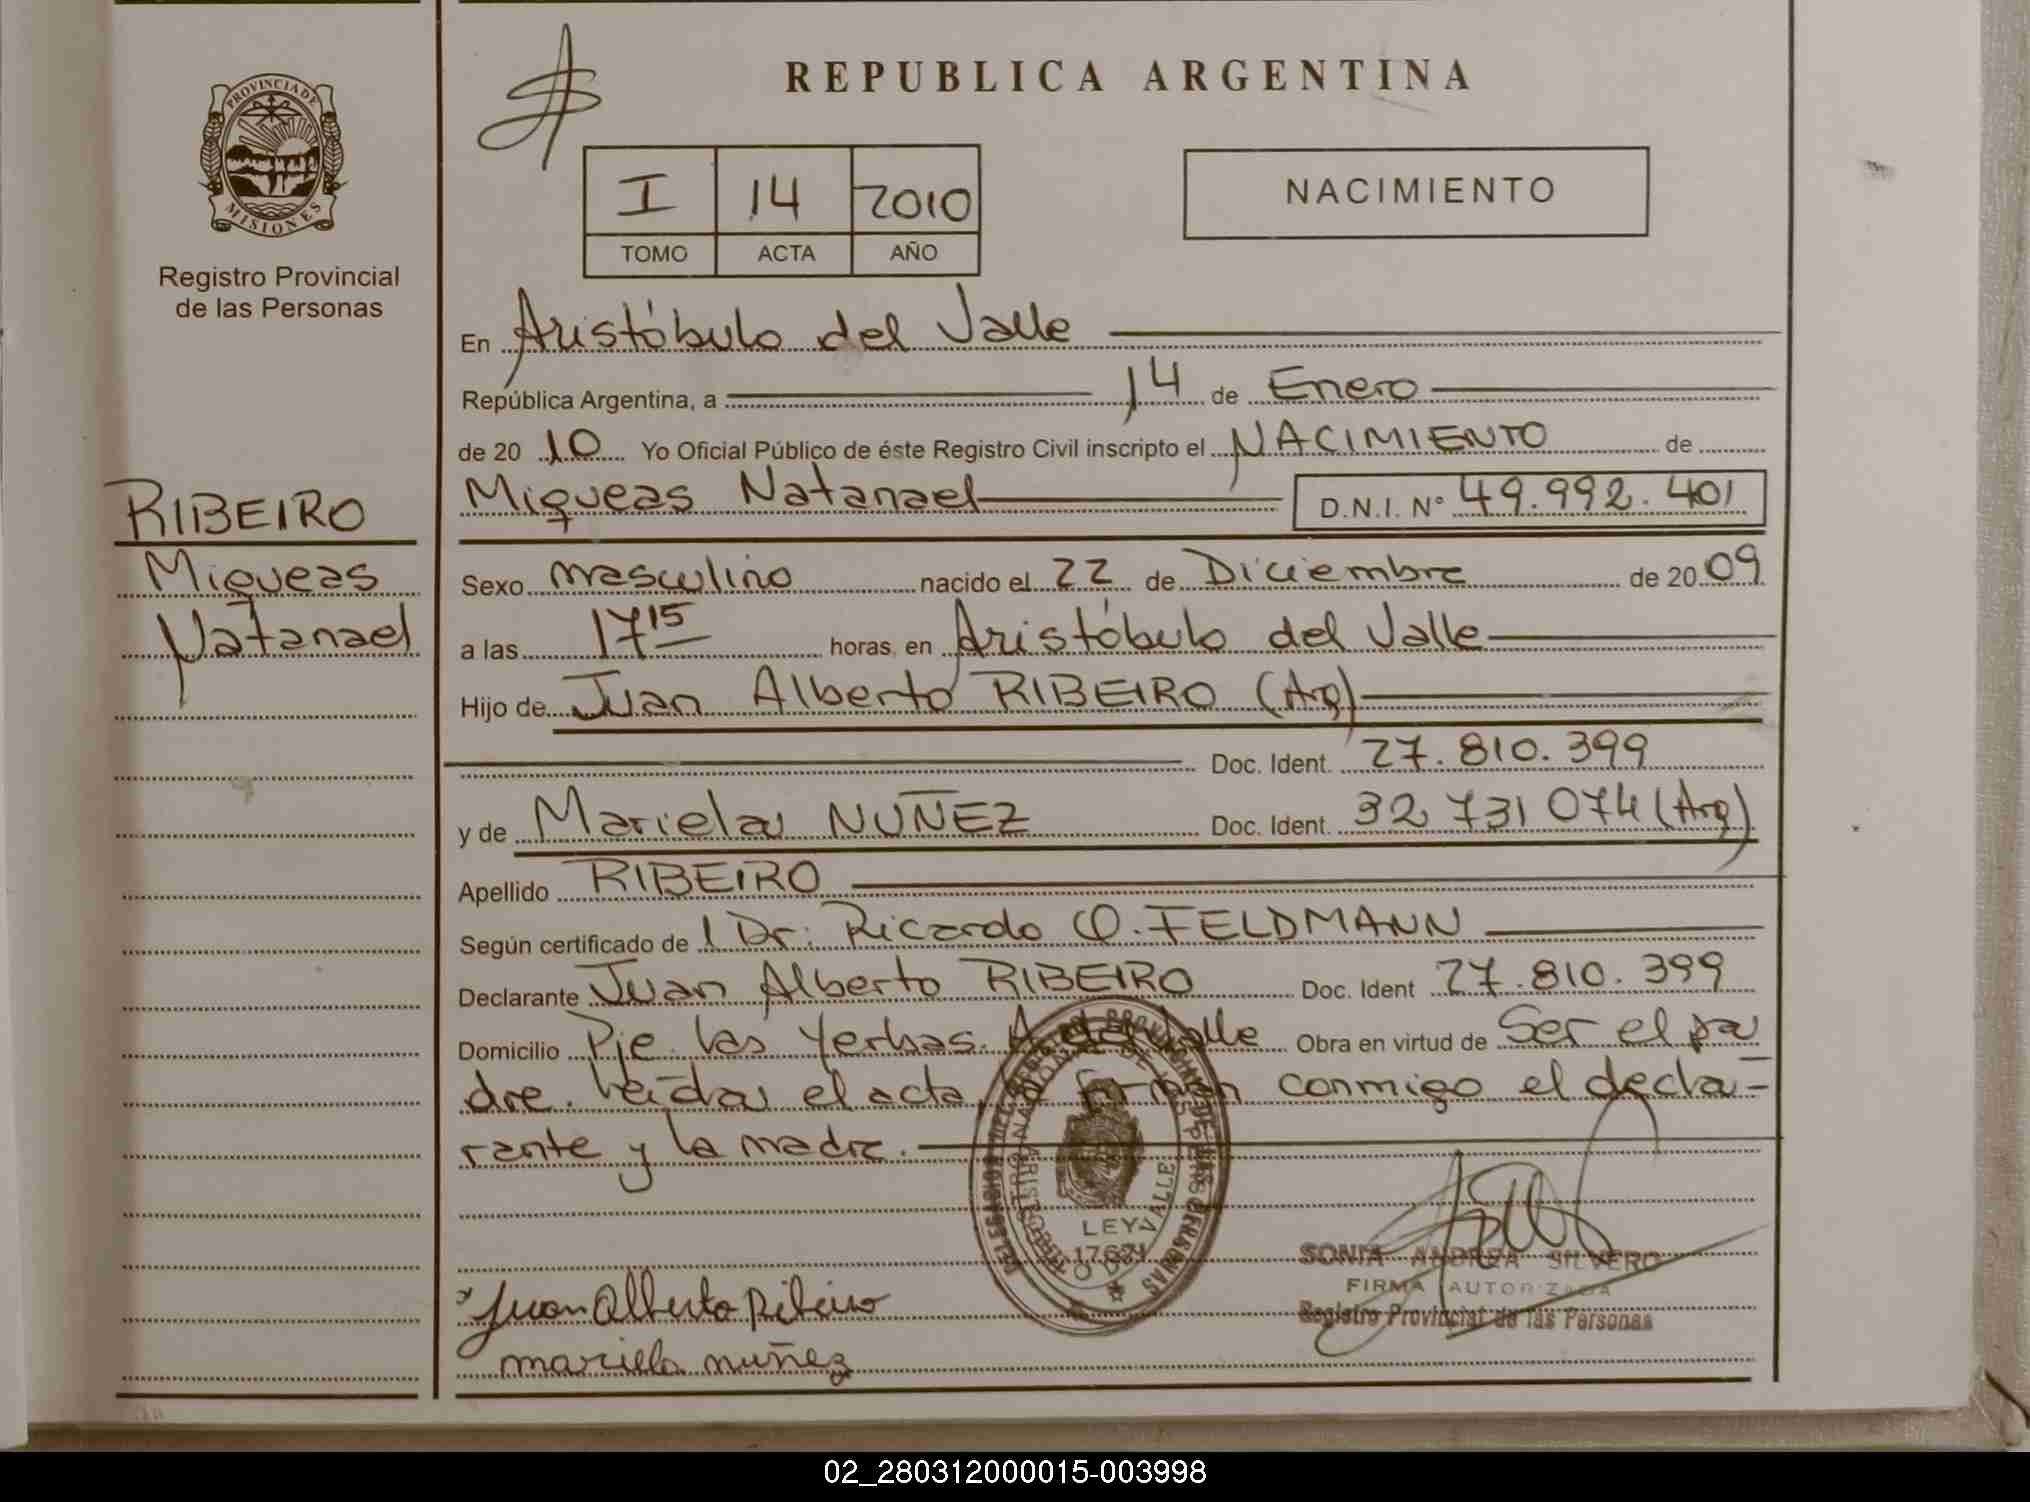 PROVINCIA DE
MISIONES
Registro Provincial
de las Personas
RIBEIRO
Miqueas
Natanael
REPUBLICA ARGENTINA
I 14 2010
TOMO ACTA AÑO
NACIMIENTO
En Aristóbulo del Valle
República Argentina, a 14 de Enero
de 20 10 Yo Oficial Público de éste Registro Civil inscripto el NACIMIENTO de
Miqueas Natanael D.N.I. N° 49.992.401
Sexo masculino nacido el 22 de Diciembre de 20 09
a las 17 15 horas, en Aristóbulo del Valle
Hijo de Juan Alberto RIBEIRO (Arg)
Doc. Ident. 27.810.399
y de Mariela NUÑEZ Doc. Ident. 32 731 074 (Arg)
Apellido RIBEIRO
Según certificado de l Dr. Ricardo O. FELDMANN
Declarante Juan Alberto RIBEIRO Doc. Ident 27.810.399
Domicilio Pje. las Yerbas. A del Valle Obra en virtud de Ser el pa
dre. Leída el acta, firman conmigo el decla-
rante y la madre.
LEY
17671
SONIA ANDREA SILVERO
FIRMA AUTORIZADA
Registro Provincial de las Personas
Juan Alberto Ribeiro
mariela nuñez
02_280312000015-003998